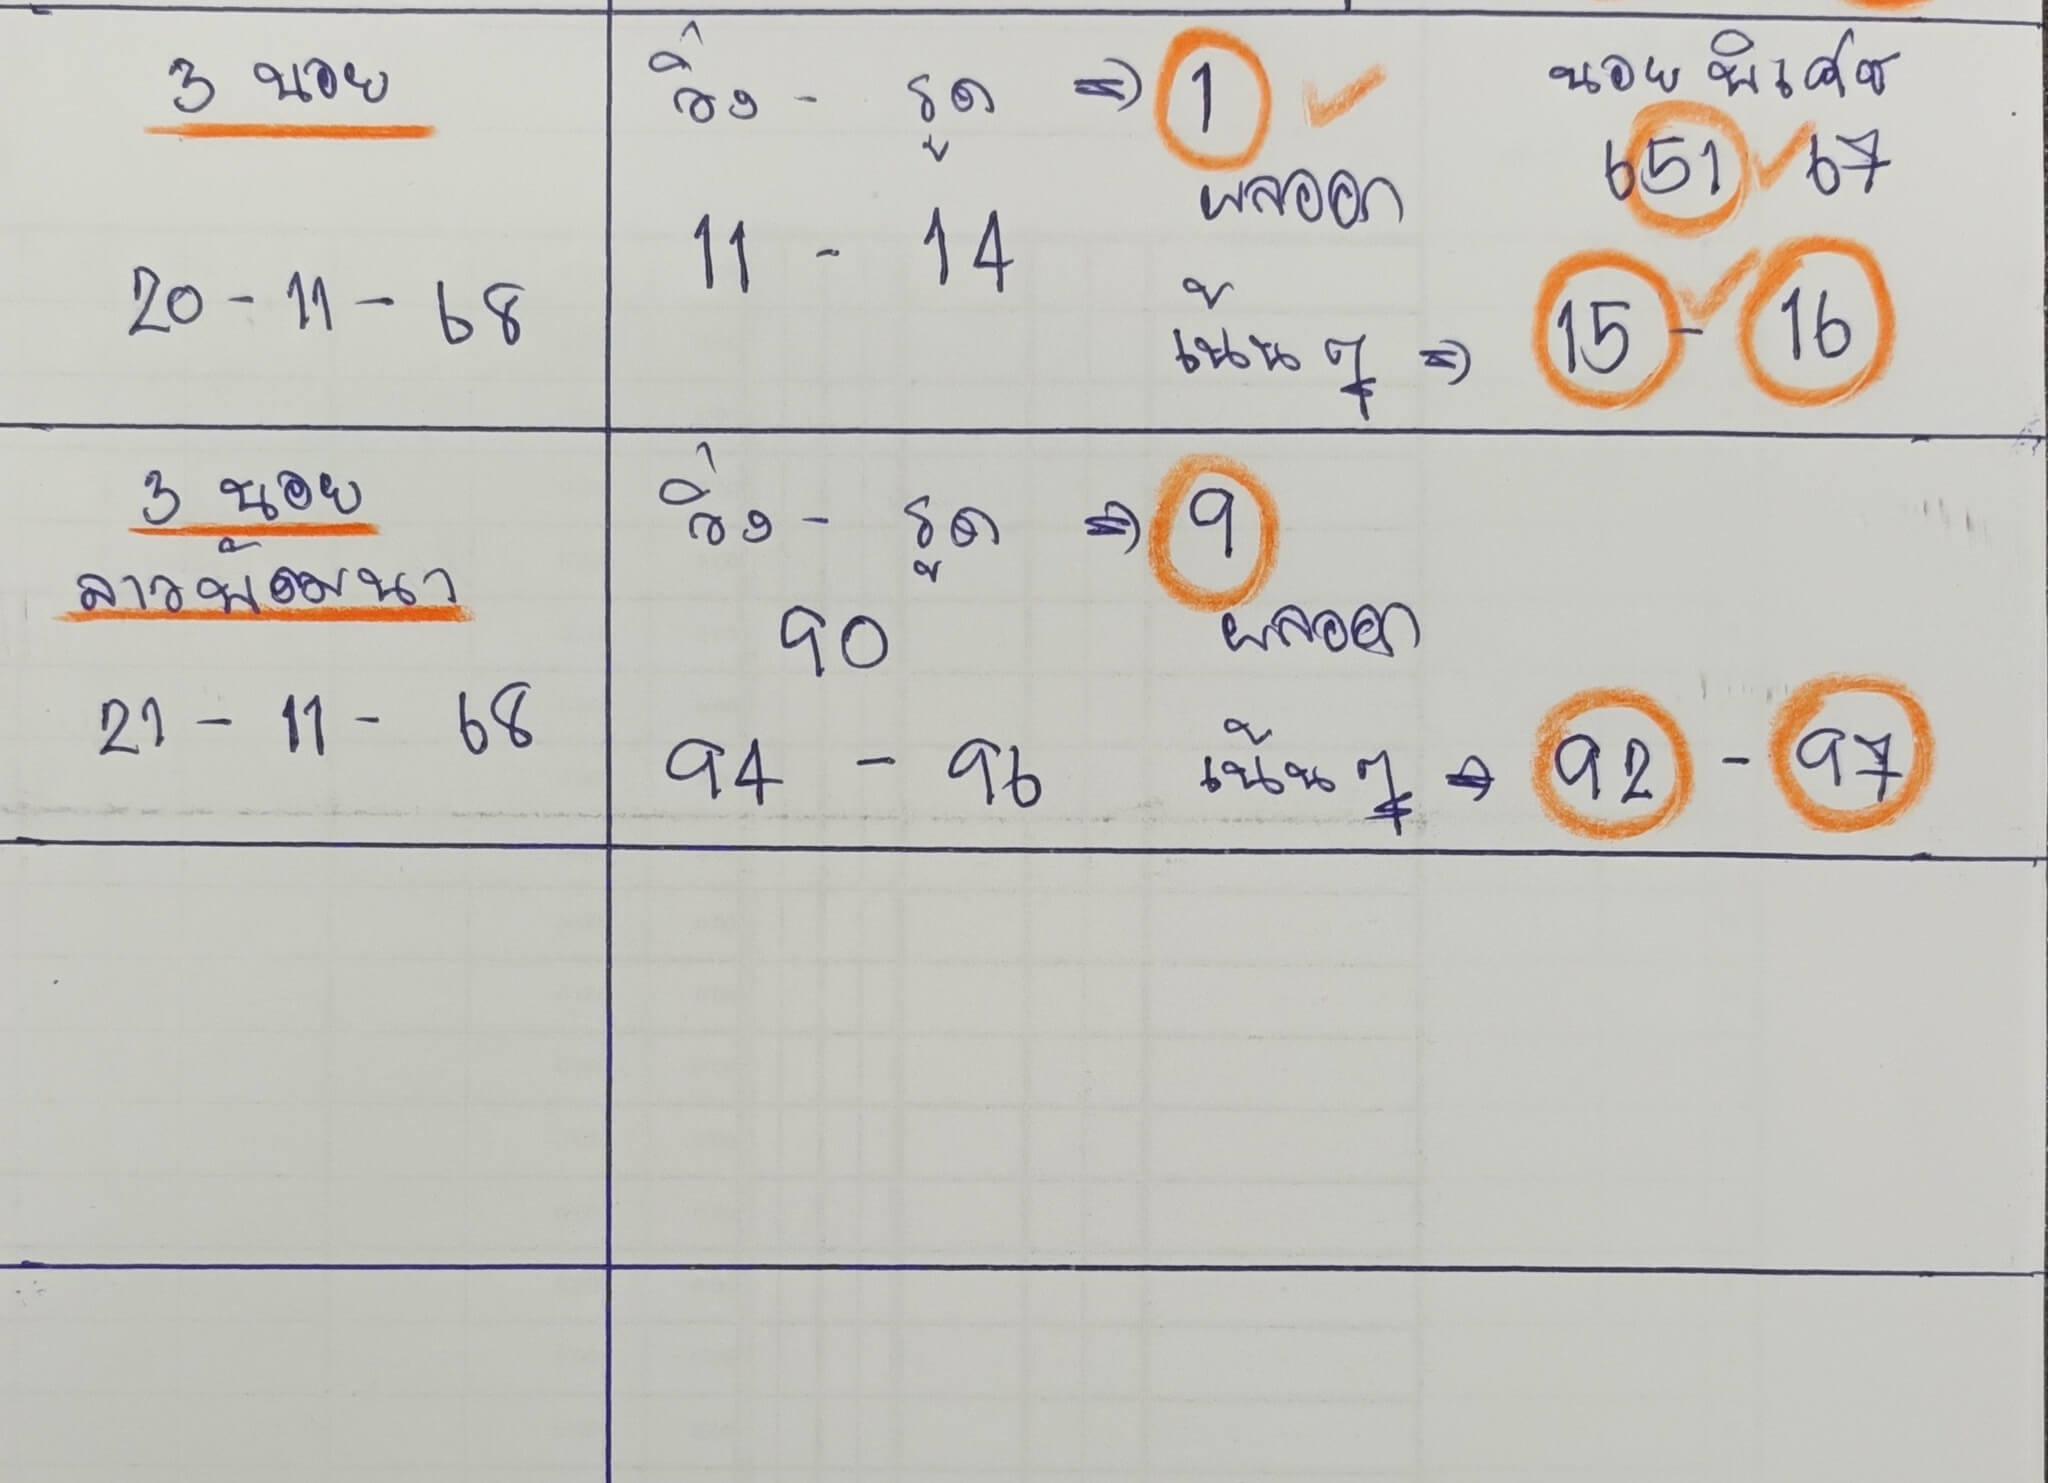 3 นอย
20 - 11 - 68
วิ่ง - รูด => 1 ✓
ผลออก
นอย พิเศษ
651 ✓ 67
11 - 14
เน้น ๆ => 15 - 16 ✓
3 นอย
ลาวพัฒนา
21 - 11 - 68
วิ่ง - รูด => 9
90
ผลออก
94 - 96
เน้น ๆ => 92 - 97